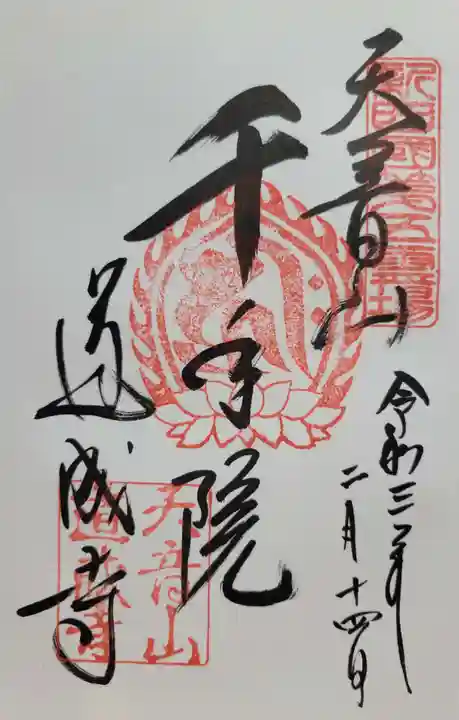 天音山
千手院
道成寺
令和三年
二月十四日
天音山
道成寺